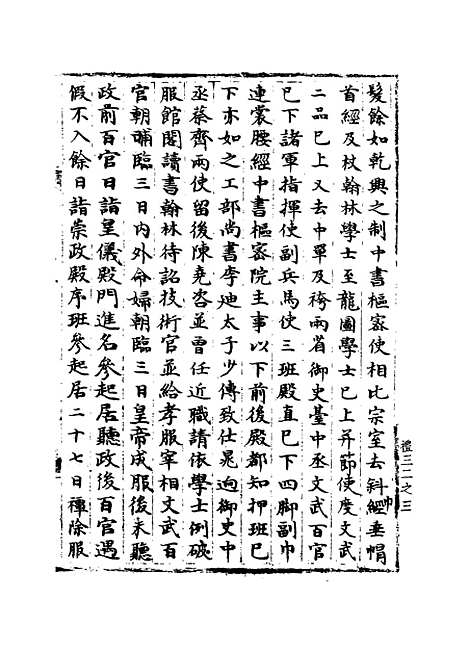 髮餘如乾興之制中書樞密使相比宗室去斜經垂㡌
首經及杖翰林學士至龍圖學士已上并節使度文武
二品已上又去中單及袴兩省御史臺中丞文武百官
已下諸軍指揮使副兵馬使三班殿直已下四脚副巾
連裳腰經中書樞密院主事以下前後殿都知押班已
下亦如之工部尚書李迪太子少傅致仕晁迥御史中
丞蔡齊兩使留後陳堯咨並曾任近職請依學士例破
服館閣讀書翰林待詔技術官並給孝服宰相文武百
官朝晡臨三日內外命婦朝臨三日皇帝成服後未聽
政前百官日詣皇儀殿門進名參起居聽政後百官遇
假不入餘日詣崇政殿序班參起居二十七日禫除服
禮三二之三